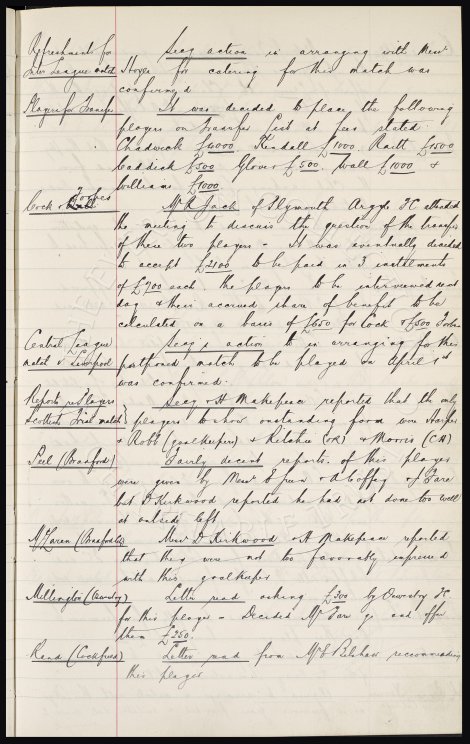 Refreshments for Secy action in arranging with Messrs
Inter League match Hoyer for catering for this match was
confirmed
Players for Transfer It was decided to place the following
players on transfer list at fees stated
Chadwick £4000 Kendall £1000 Raitt £1500
Caddick £500 Glover £500. Wall £1000 &
Williams £1000
Cock & Forbes Mr R Jack of Plymouth Argyle FC attended
the meeting to discuss the question of the transfer
of these two players - It was eventually decided
to accept £2100 to be paid in 3 instalments
of £700 each the players to be interviewed next
day & their accrued share of benefit to be
calculated on a basis of £650 for Cock & £500 Forbes
Central League Secy's action to in arranging for this
match v Liverpool postponed match to be played on April 1st
was confirmed.
Reports re Players Secy & H Makepeace reported that the only
Scottish Trial match players to show outstanding form were Harper
& Robb (goalkeepers) & Ritchie (OR) & Morris (CH)
Peel (Bradford) Fairly decent reports. of this player
were given by Messrs & Coffey & Fare
but D Kirkwood reported he had not done too well
at outside left
McLaren (Bradford City) Messrs D. Kirkwood & H Makepeace reported
that they were not too favorably impressed
with this goalkeeper
Millington (Oswestry) Letter read asking £300 by Oswestry FC
for this player - Decided Mr Fare go and offer
them £250.
Rand (Cockfield) Letter read from Mr E Belshaw recommending
this player